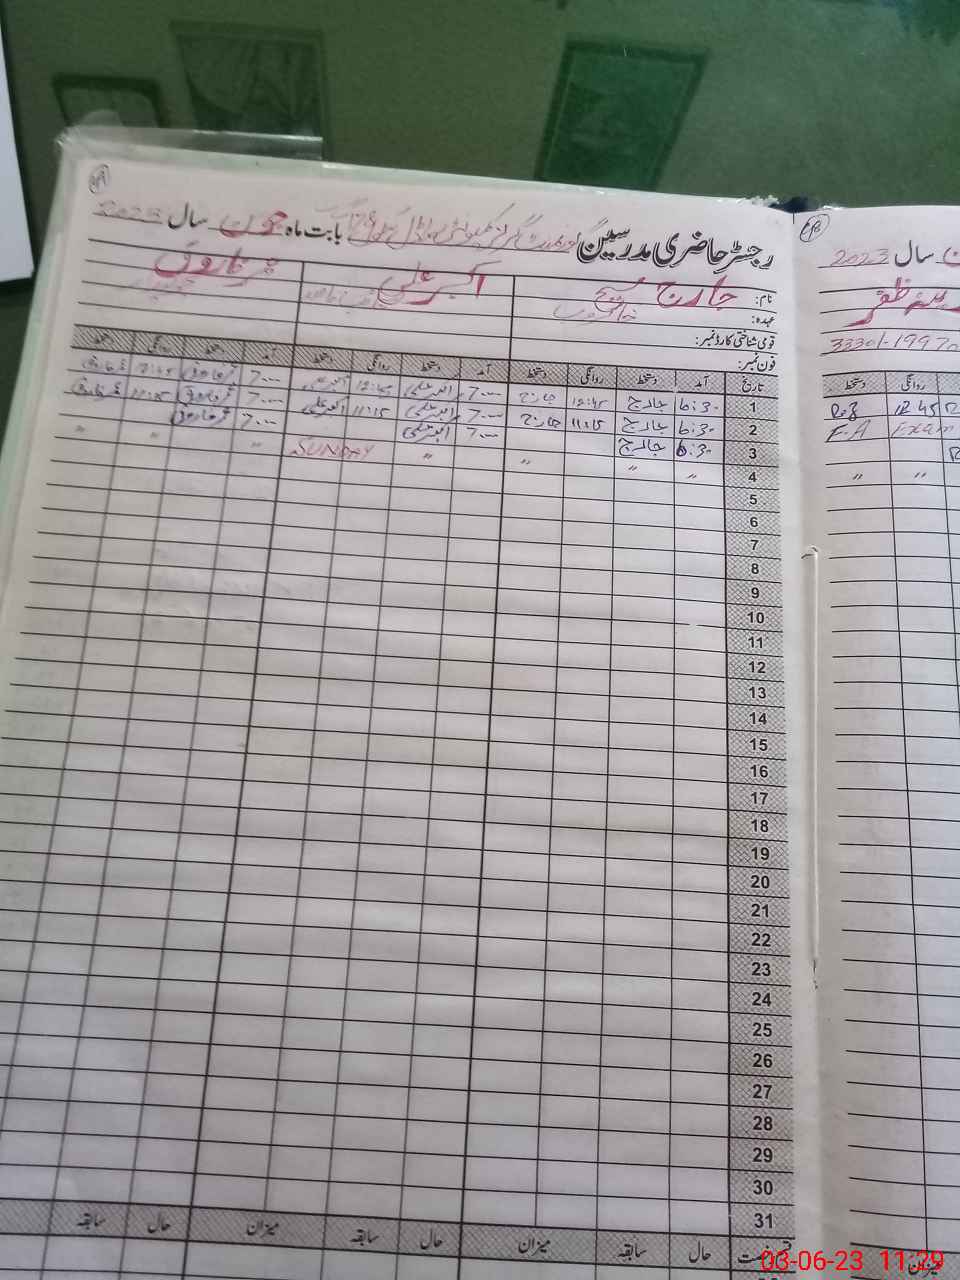 رجسٹر حاضری مدرسین گورنمنٹ گرلز کمیونٹی ماڈل بابت ماہ جون سال 2023
نام: جارج مسیح اکبر علی عمر فاروق
عہدہ: خاکروب
قومی شناختی کارڈ نمبر:
فون نمبر:
تاریخ آمد دستخط روانگی دستخط آمد دستخط روانگی دستخط آمد دستخط روانگی دستخط
1 6:30 جارج 12:45 جارج 7:00 اکبر علی 12:45 اکبر علی 7:00 عمر فاروق 12:45 عمر فاروق
2 6:30 جارج 11:15 جارج 7:00 اکبر علی 11:15 اکبر علی 7:00 عمر فاروق 11:15 عمر فاروق
3 6:30 جارج 7:00 اکبر علی 7:00 عمر فاروق
4 〃 〃 〃 〃 SUNDAY 〃 〃 〃
5
6
7
8
9
10
11
12
13
14
15
16
17
18
19
20
21
22
23
24
25
26
27
28
29
30
31
حال سابقہ میزان حال سابقہ میزان حال سابقہ
سال 2023
ظفر
33301-1997
روانگی دستخط
12 45
Exam F.A
〃 〃
میزان
03-06-23 11:29